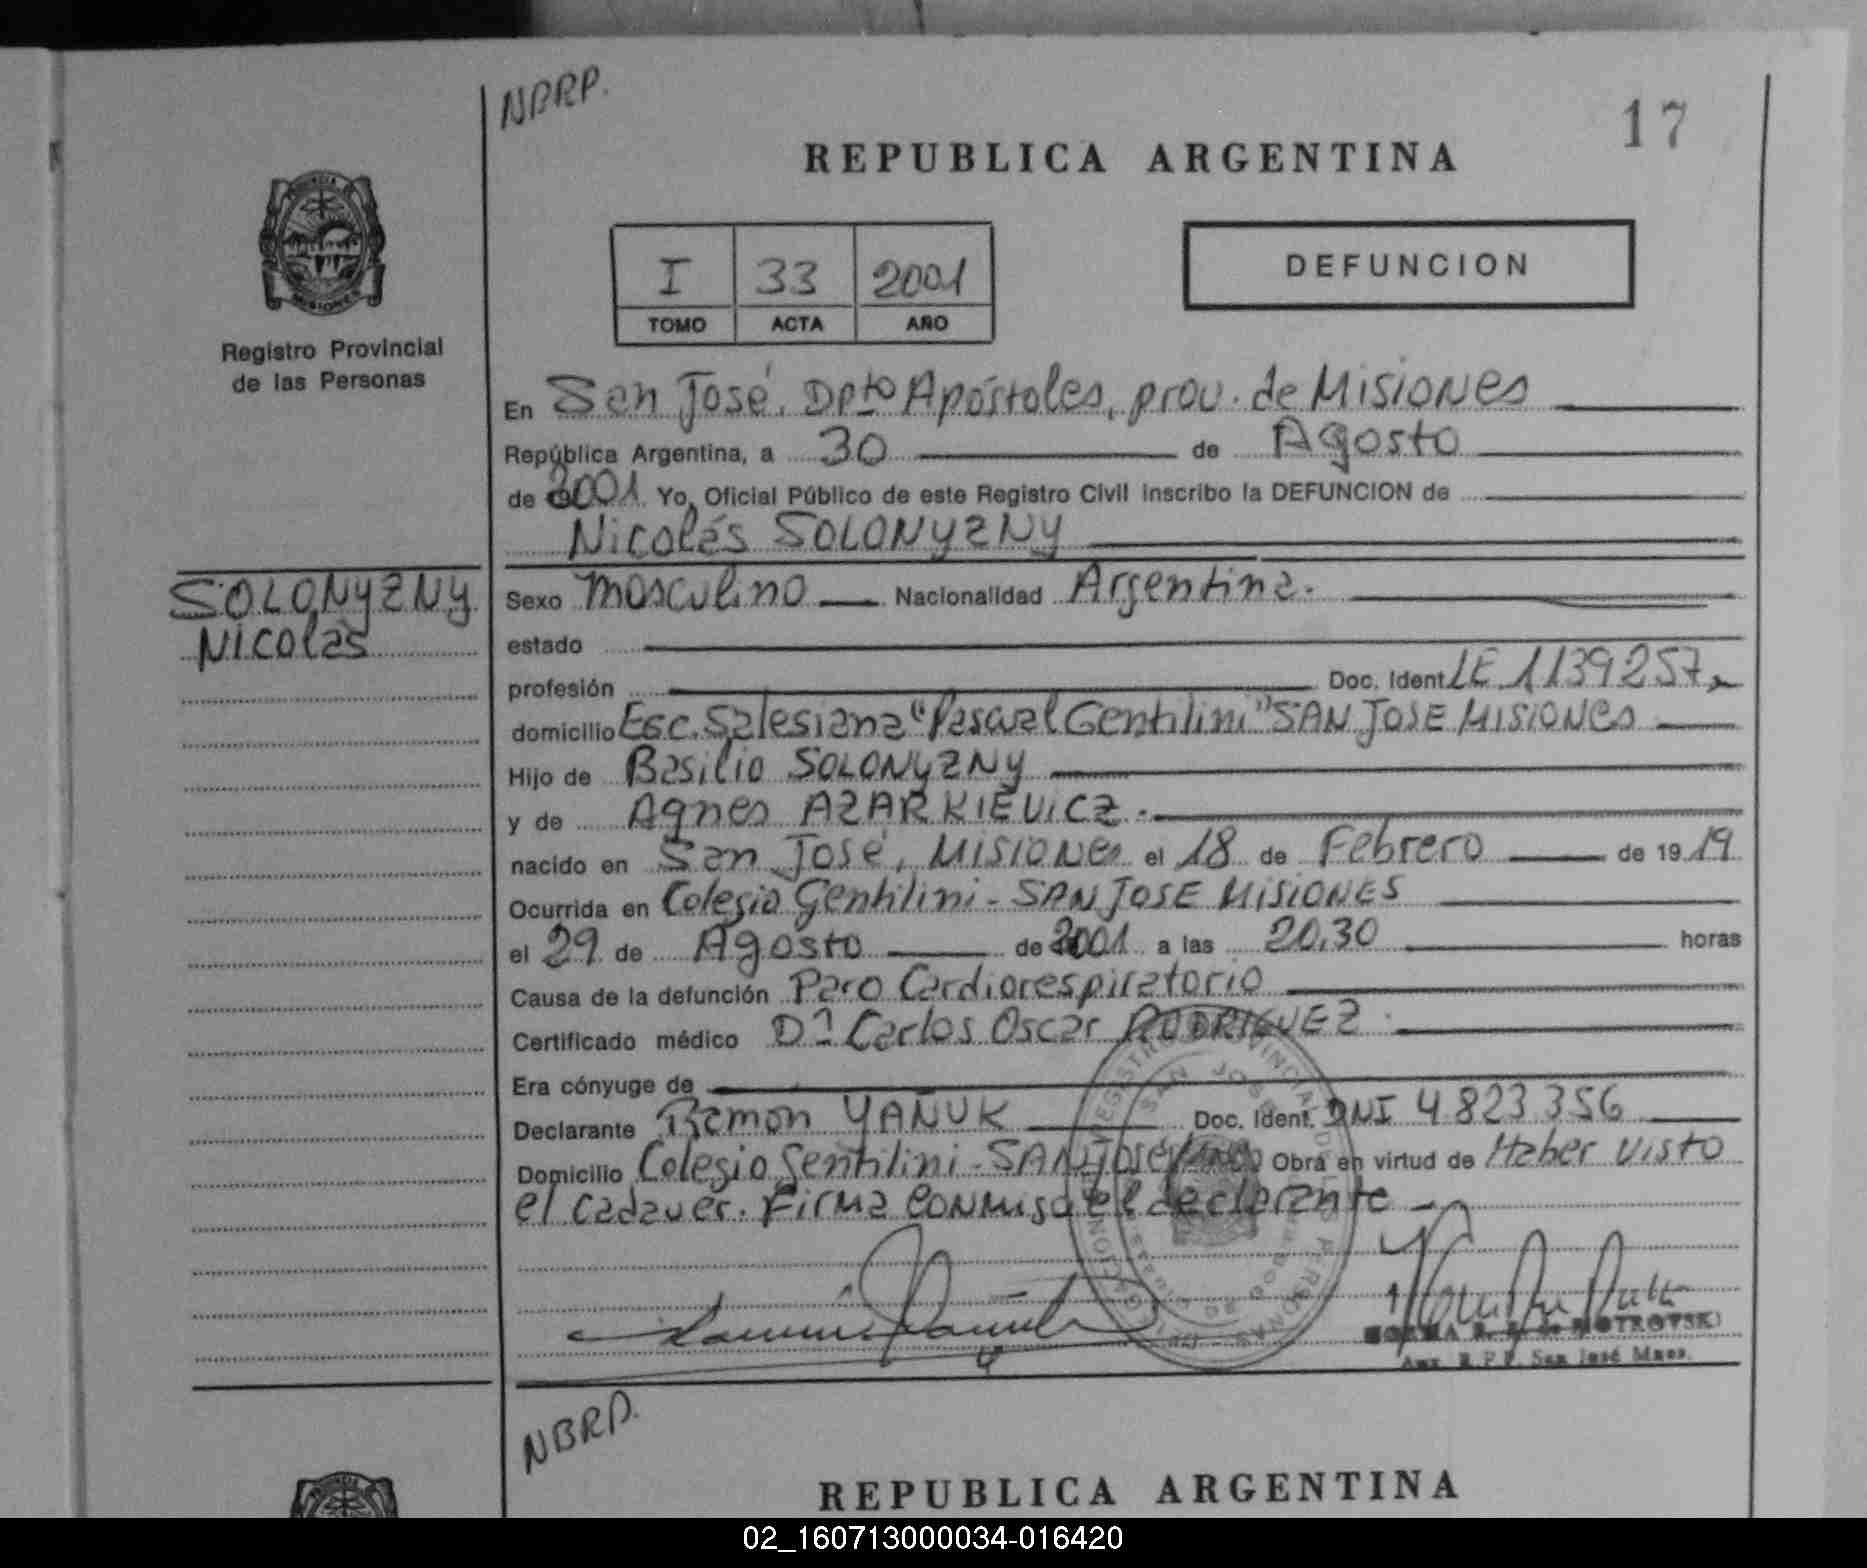 NBRP.
17
REPUBLICA ARGENTINA
I 33 2001
TOMO ACTA AÑO
DEFUNCION
Registro Provincial
de las Personas
En San José, Dpto Apóstoles, prov. de Misiones
República Argentina, a 30 de Agosto
de 2001 Yo, Oficial Público de este Registro Civil inscribo la DEFUNCION de
Nicolás SOLONYZNY
SOLONYZNY
Nicolás
Sexo masculino Nacionalidad Argentina.
estado
profesión Doc. Ident. LE 1139257
domicilio Esc. Salesiana "Pascual Gentilini" SAN JOSE MISIONES
Hijo de Basilio SOLONYZNY
y de Agnes AZARKIEVICZ.
nacido en San José, MISIONES el 18 de Febrero de 1919
Ocurrida en Colegio Gentilini - SAN JOSE MISIONES
el 29 de Agosto de 2001 a las 20,30 horas
Causa de la defunción Paro Cardiorespiratorio
Certificado médico Dr Carlos Oscar RODRIGUEZ.
Era cónyuge de
Declarante Ramon YAÑUK Doc. Ident. DNI 4823356
Domicilio Colegio Gentilini - SAN José Obra en virtud de Haber visto
el cadaver. Firma conmigo el declarante
REGISTRO PROVINCIAL DE LAS PERSONAS
SAN JOSE
Aux. R.P.P. San José Mnes.
NBRP.
REPUBLICA ARGENTINA
02_160713000034-016420